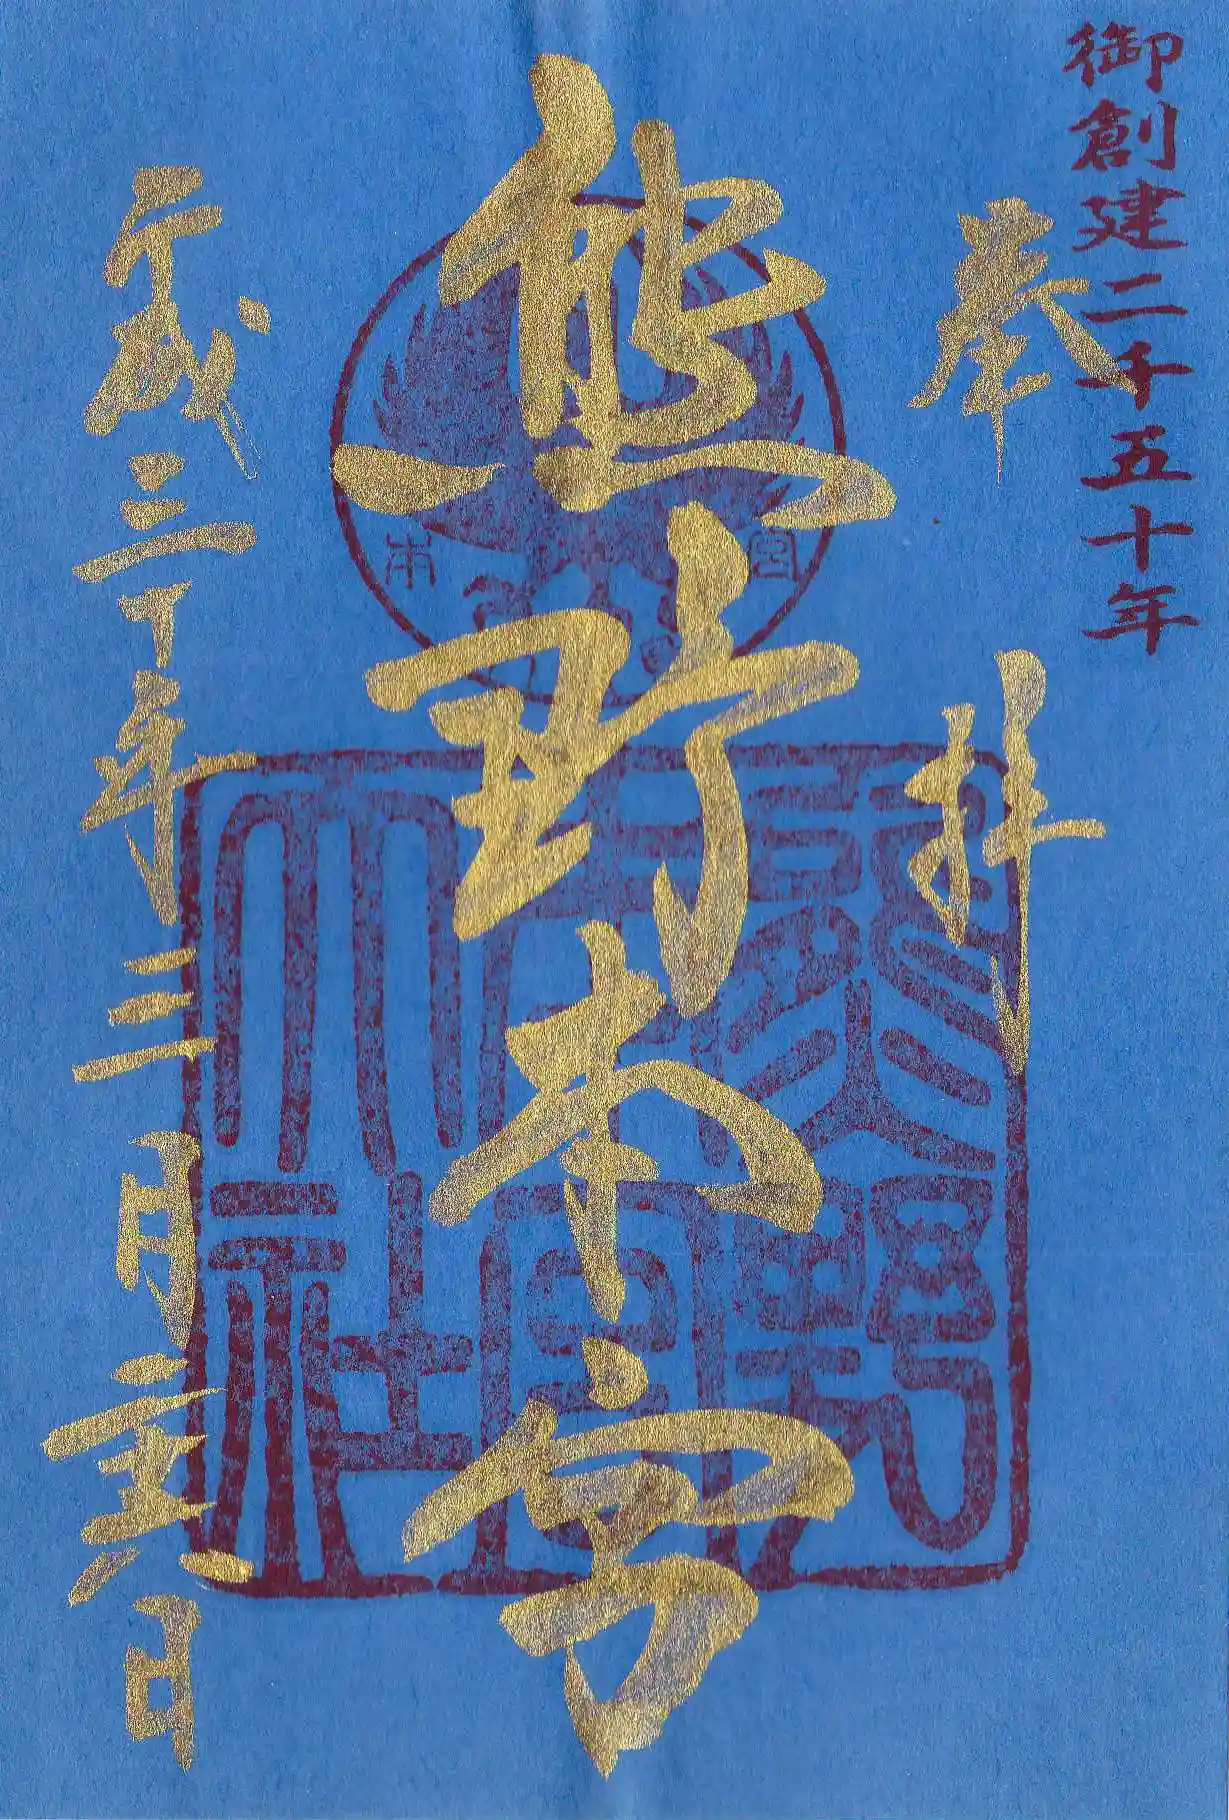 御創建二千五十年
奉拝
熊野本宮
平成三十年三月二十六日
本宮
熊野
本宮
大社